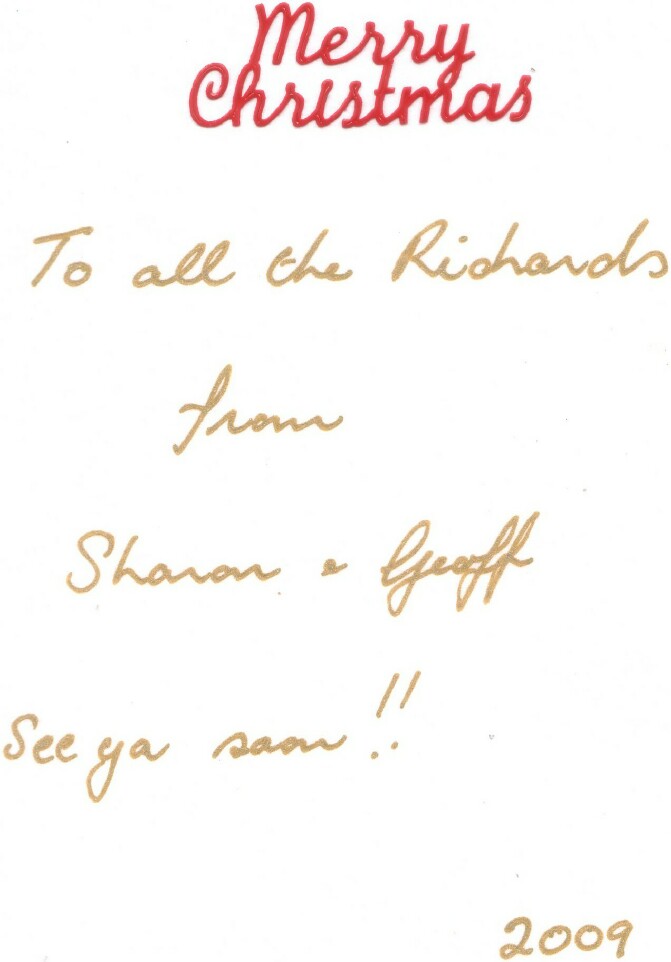 Merry
Christmas
To all the Richards
from
Sharon & Geoff
See ya soon!!
2009